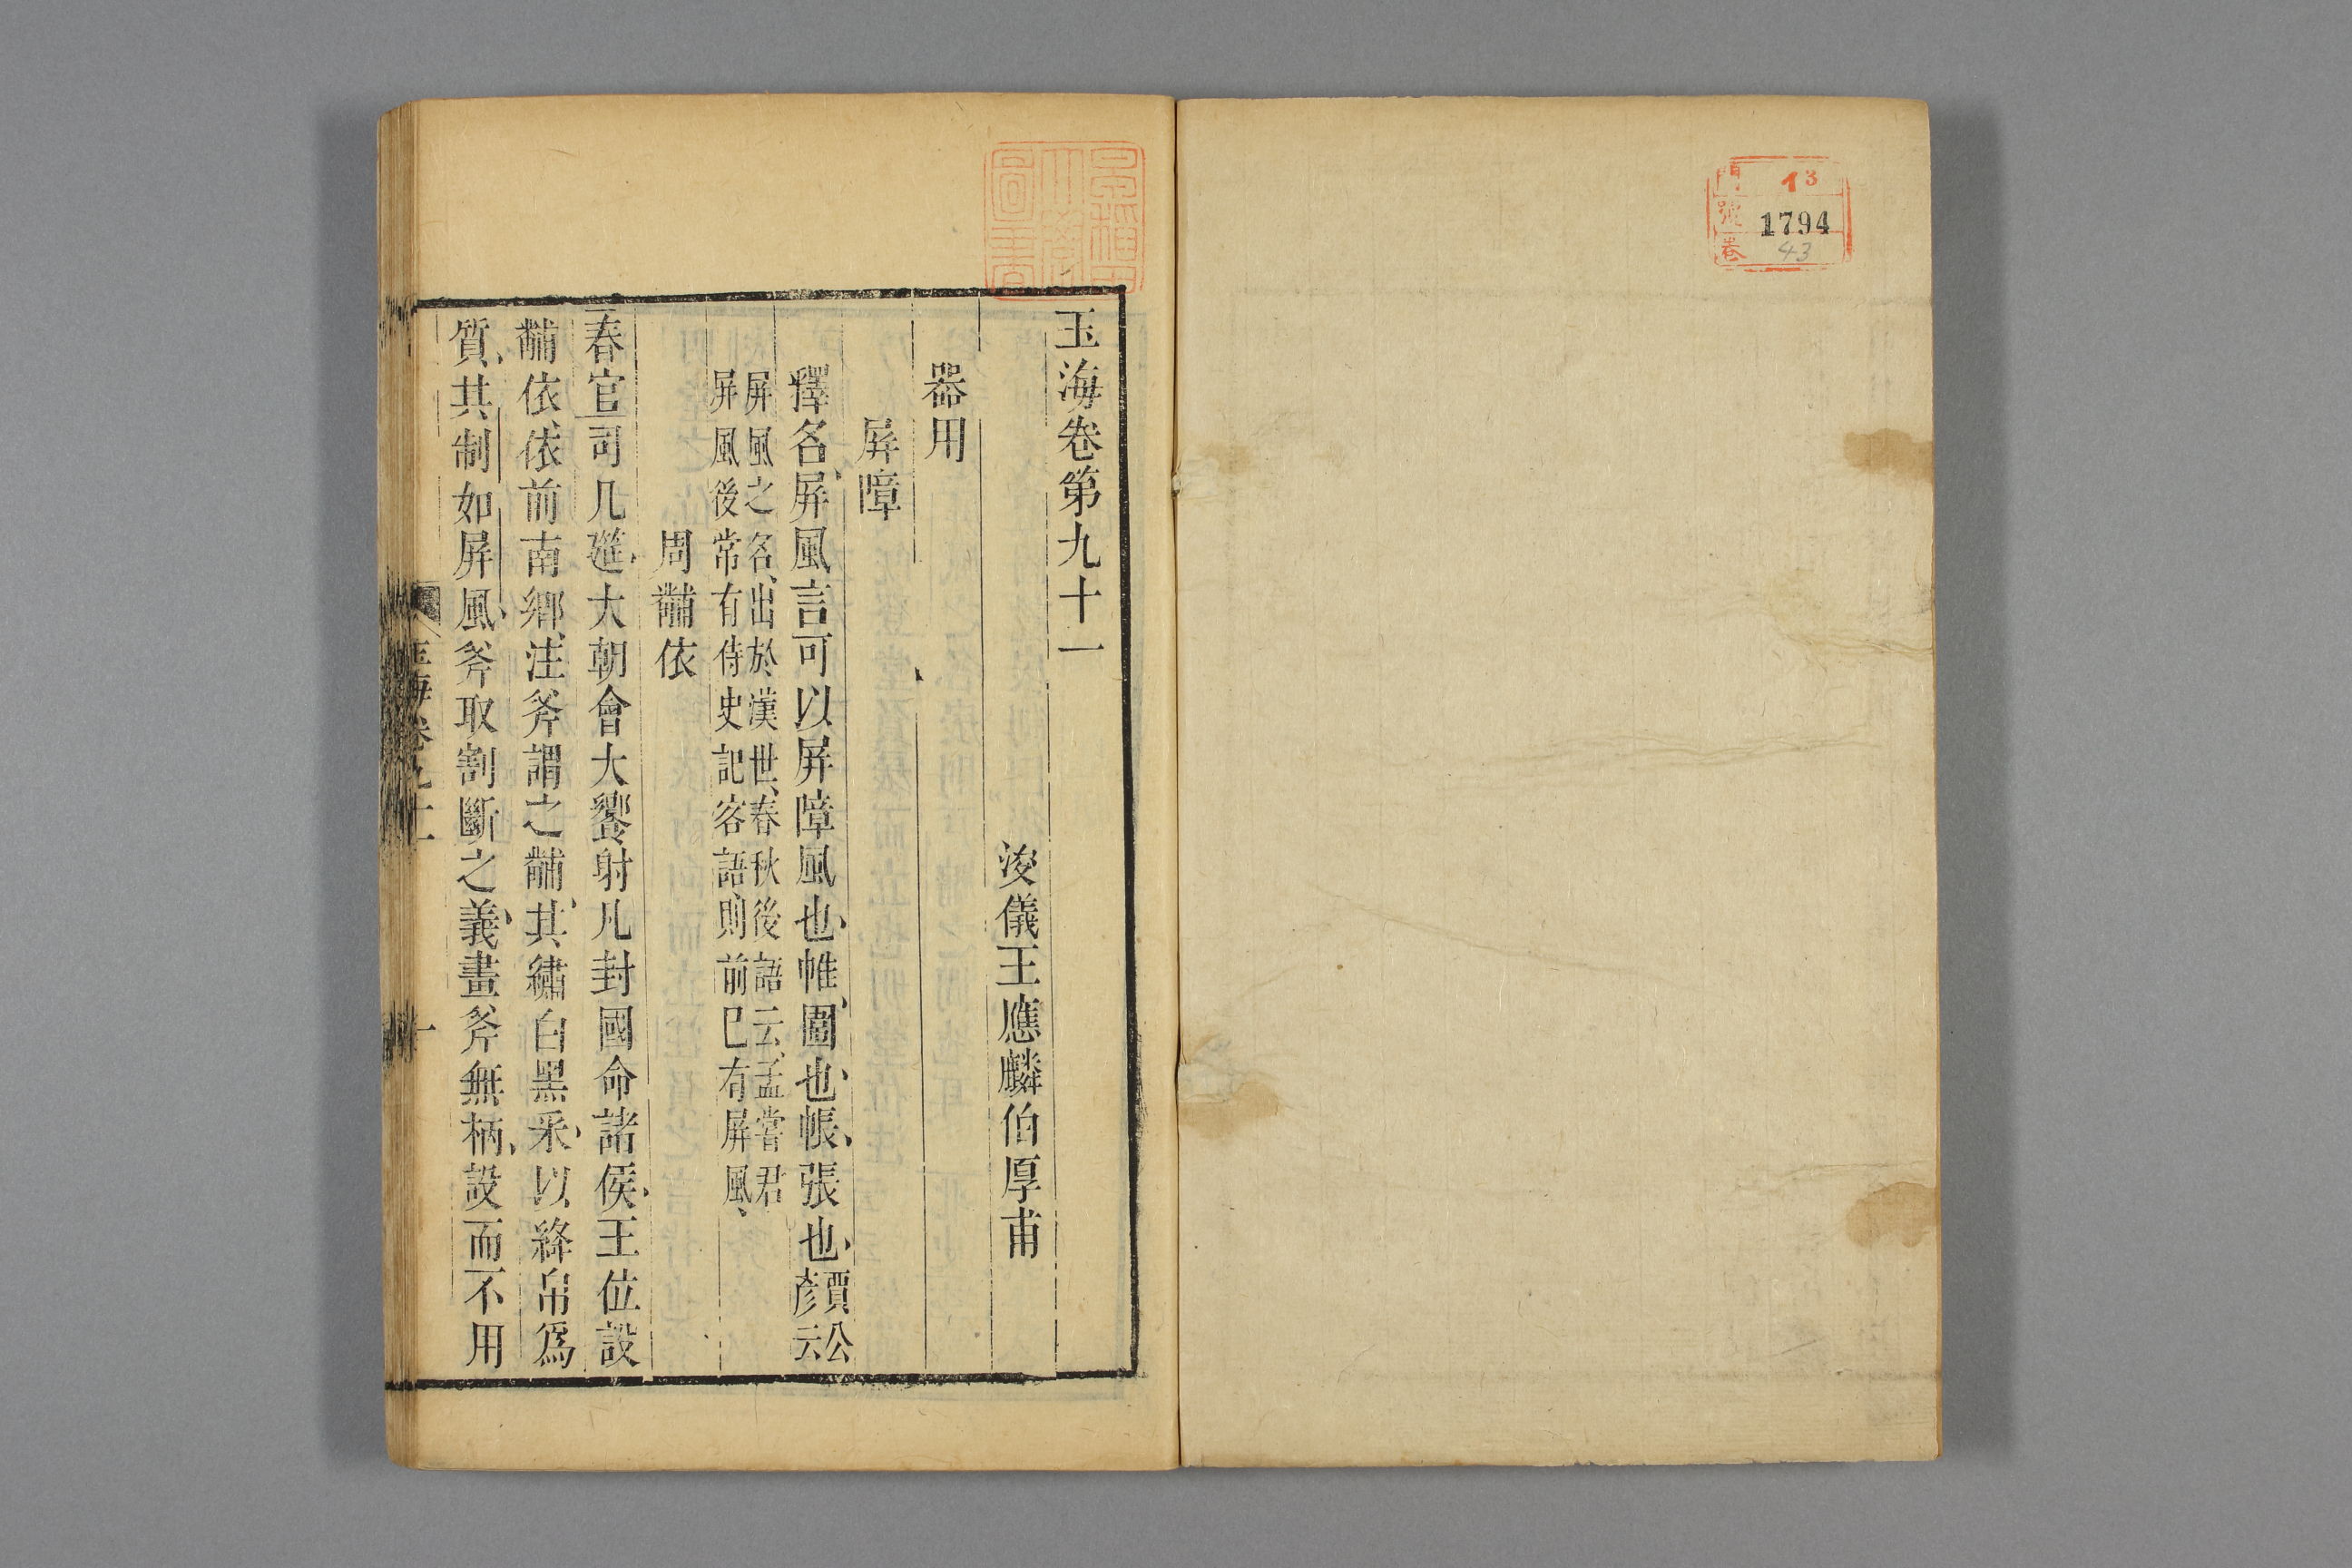 門 13
號 1794
卷 43
玉海卷第九十一
浚儀王應麟伯厚甫
器用
屏障
釋名屏風言可以屏障風也帷圍也帳張也賈公
彥云
屏風之名出於漢世春秋後語云孟嘗君
屏風後常有侍史記客語則前已有屏風
周黼依
春官司几筵大朝會大饗射凡封國命諸侯王位設
黼依依前南鄉注斧謂之黼其繡白黑采以絳帛爲
質其制如屏風斧取割斷之義畫斧無柄設而不用
玉海卷九十一
一